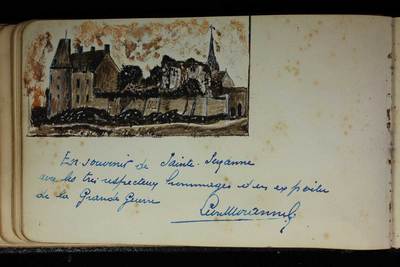 En souvenir de Sainte-Suzanne
avec les très respectueux hommages d'un ex poilu
de la Grande Guerre